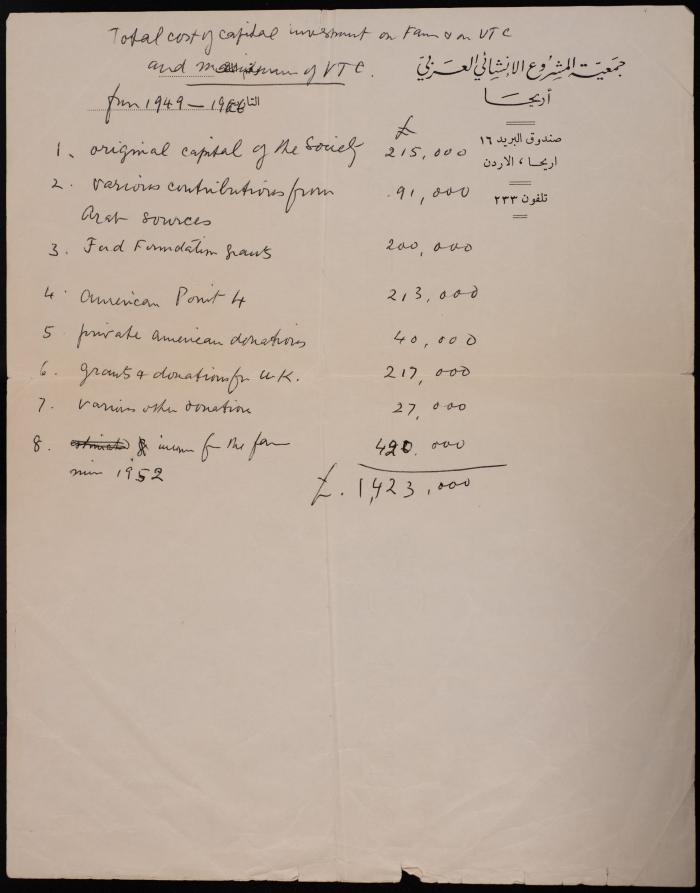 Total cost of capital investment on Farm & on VTC
and of VTC.
جمعيّة المشروع الإنشائي العربيّ
أريحا
صندوق البريد ١٦
اريحا ، الاردن
تلفون ٢٣٣
التاريخ
from 1949 – 1966
£
1. original capital of the Society 215,000
2. various contributions from 91,000
Arab sources
3. Ford Foundation grants 200,000
4. American Point 4 213,000
5. private American donations 40,000
6. grants & donations fr U.K. 217,000
7. various other donation 27,000
8. income for the farm 420,000
since 1952
£. 1,423,000